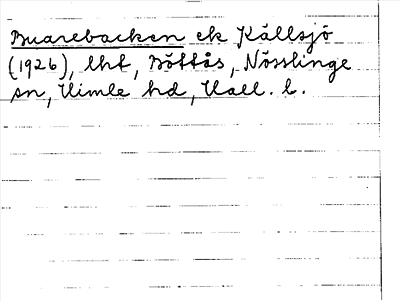 Buarebacken ek Källsjö
(1926), lht, Böttås, Nösslinge
sn, Himle hd, Hall. l.